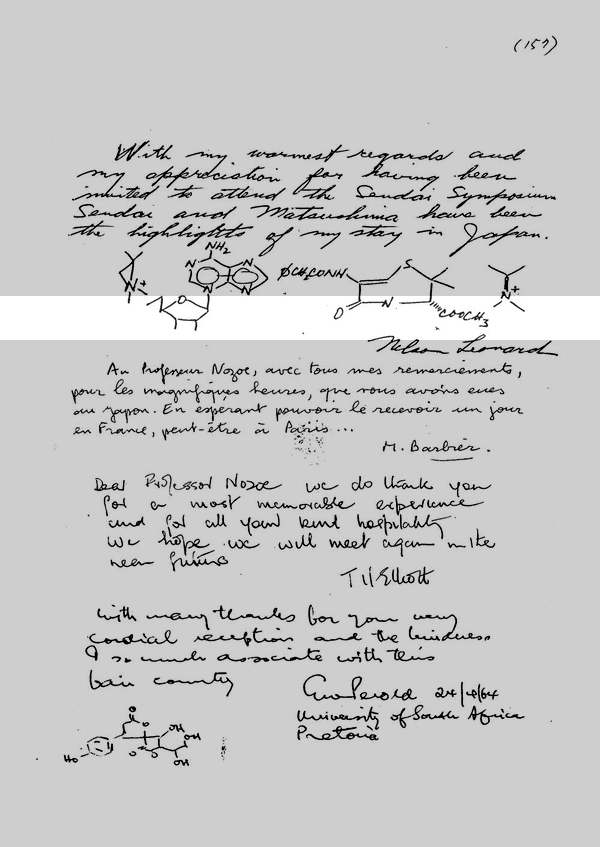 (157)
With my warmest regards and
my appreciation for having been
invited to attend the Sendai Symposium
Sendai and Matsushima have been
the highlights of my stay in Japan.
NH2
N N N N N+
O
øCH2CONH S N O COOCH3
N+
Nelson Leonard
Au Professeur Nozoe, avec tous mes remerciements,
pour les magnifiques heures, que nous avons eues
au Japon. En esperant pouvoir le recevoir un jour
en France, peut-être à Paris...
M. Barbier.
Dear Professor Nozoe we do thank you
for a most memorable experience
and for all your kind hospitality
We hope we will meet again in the
near future
T H Elliott
With many thanks for your very
cordial reception and the kindness
I so much associate with this
fair country
GW Perold 24/4/64
University of South Africa
Pretoria
HO O O O O OH OH OH